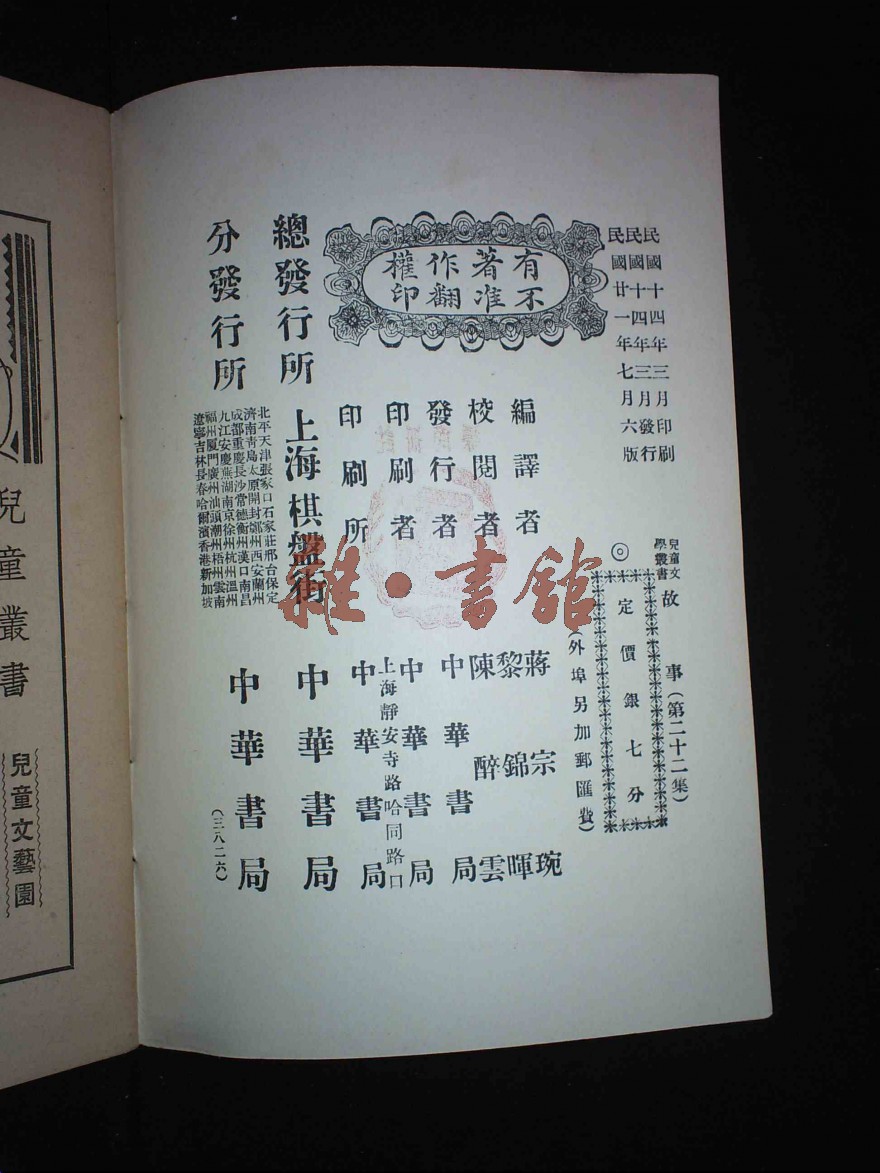 民國十四年三月印刷
民國十四年三月發行
民國廿一年七月六版
有著作權
不准翻印
兒童文學叢書
故事(第二十二集)
◎定價銀七分
(外埠另加郵匯費)
編譯者 蔣宗琬 黎錦暉
校閱者 陳醉雲
發行者 中華書局
印刷者 中華書局
印刷所 上海靜安寺路哈同路口 中華書局
總發行所 上海棋盤街 中華書局
分發行所
北平天津張家口石家莊邢台保定
濟南青島太原開封鄭州西安蘭州
成都重慶長沙常德衡州漢口南昌
九江安慶蕪湖南京徐州杭州溫州
福州厦門廣州汕頭潮州梧州雲南
遼寧吉林長春哈爾濱香港新加坡
中華書局
(三八二六)
雜·書館
兒童叢書
兒童文藝園